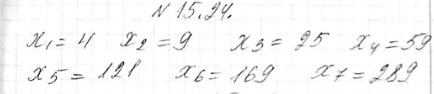 N 15.24.
x₁ = 4 x₂ = 9 x₃ = 25 x₄ = 59
x₅ = 121 x₆ = 169 x₇ = 289